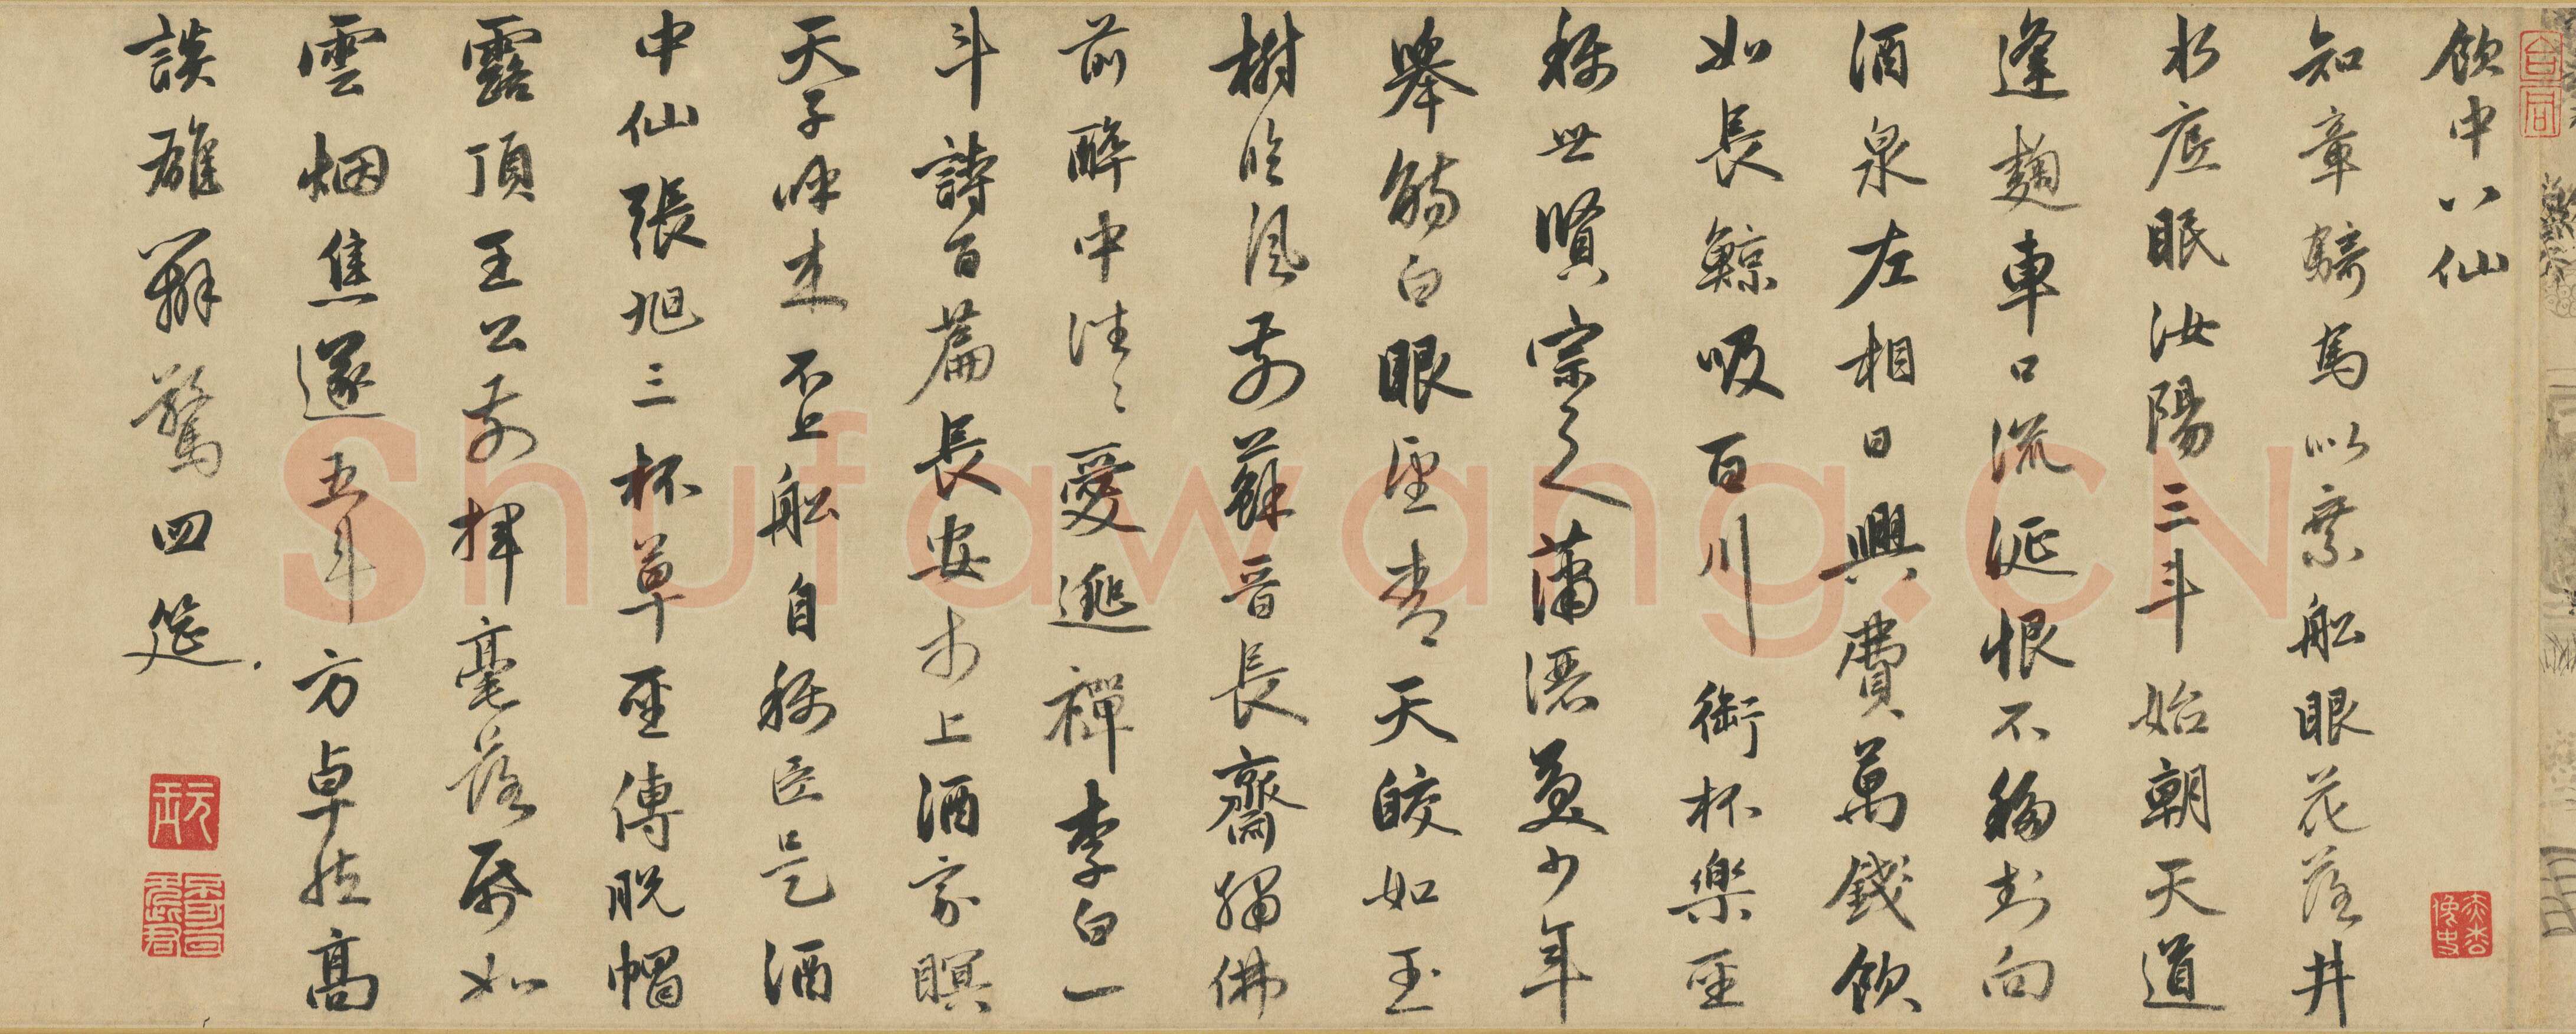 飲中八仙
知章騎馬似乘船眼花落井
水底眠汝陽三斗始朝天道
逢麹車口流涎恨不移封向
酒泉左相日興費萬錢飲
如長鯨吸百川銜杯樂聖
稱世賢宗之蕭灑美少年
舉觴白眼望青天皎如玉
樹臨風前蘇晉長齋繡佛
前醉中往〻愛逃禪李白一
斗詩百篇長安市上酒家瞑
天子呼來不上船自稱臣是酒
中仙張旭三杯草聖傳脫帽
露頂王公前揮毫落帋如
雲烟焦遂五斗方卓然高
談雄辯驚四筵
Shufawang.CN